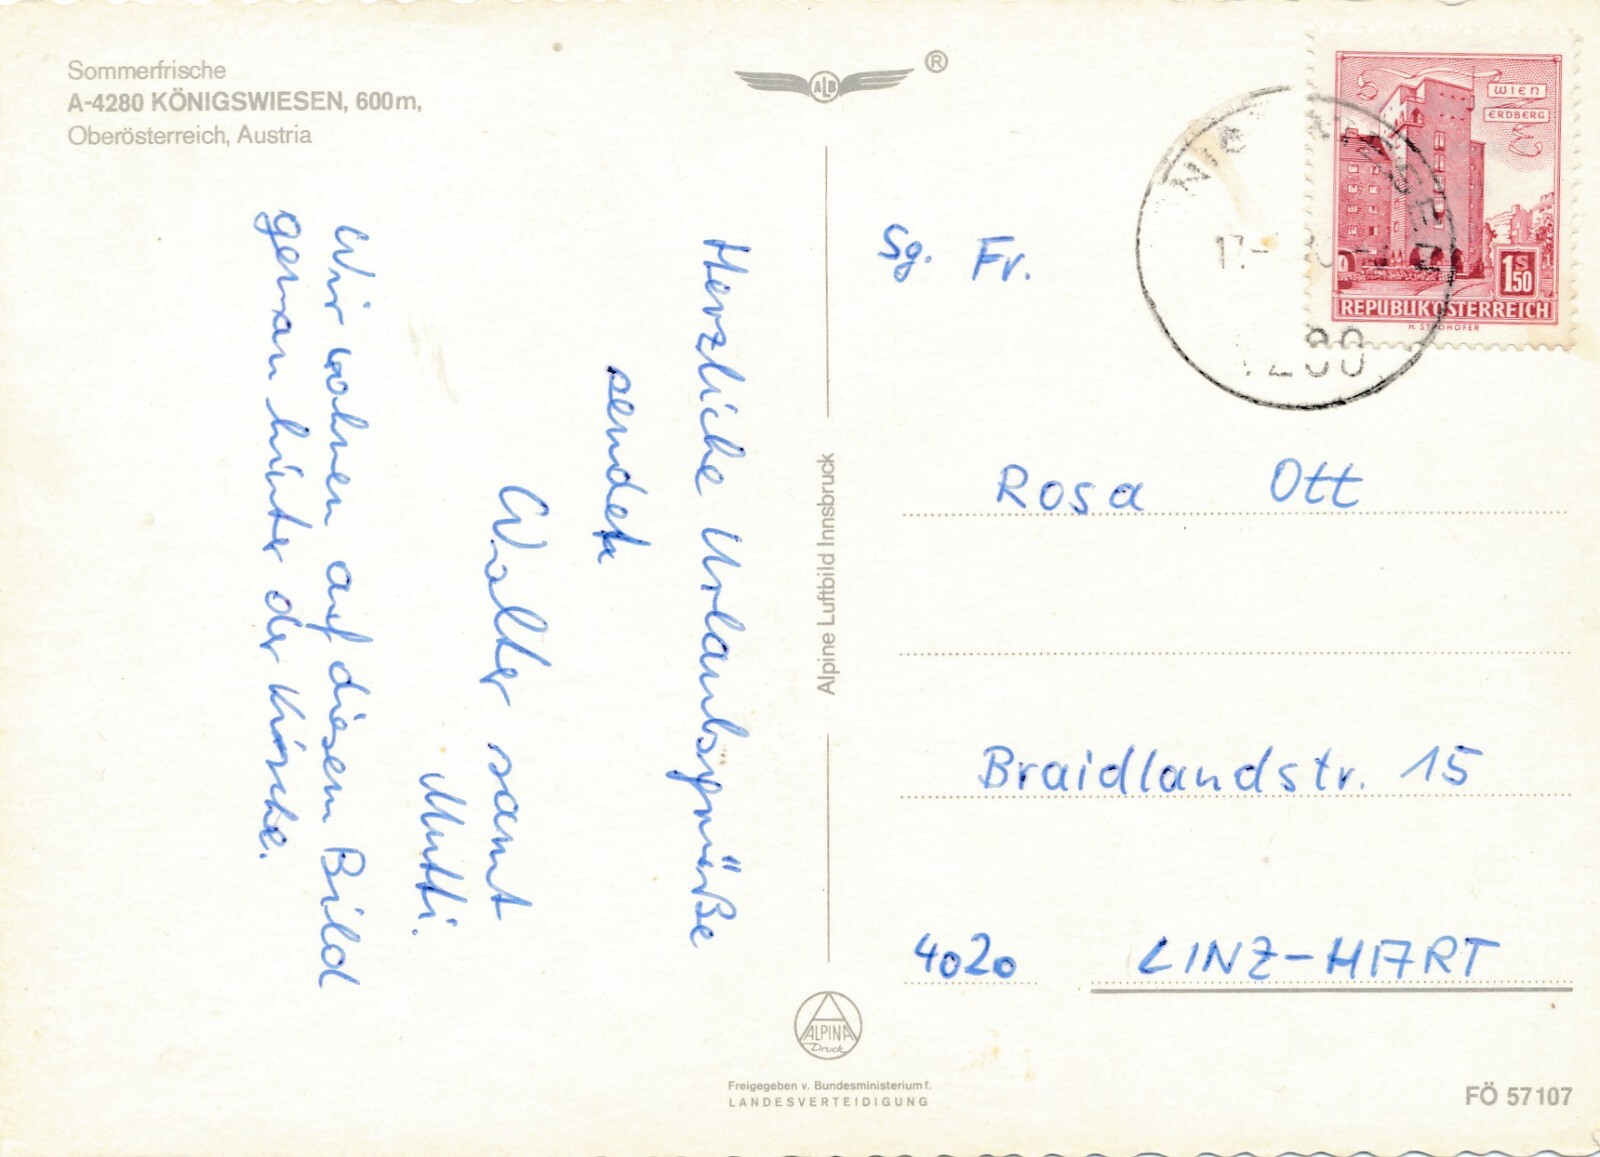 Sommerfrische
A-4280 KÖNIGSWIESEN, 600m,
Oberösterreich, Austria
ALB
®
Herzliche Urlaubsgrüße
senden
Walter samt
Mutti.
Wir wohnen auf diesem Bild
genau hinter der Kirche.
Alpine Luftbild Innsbruck
ALPINA
Druck
Freigegeben v. Bundesministerium f.
LANDESVERTEIDIGUNG
WIEN
ERDBERG
1S50
REPUBLIK ÖSTERREICH
17.-
280
Sg. Fr.
Rosa Ott
Braidlandstr. 15
4020 LINZ-HART
FÖ 57107